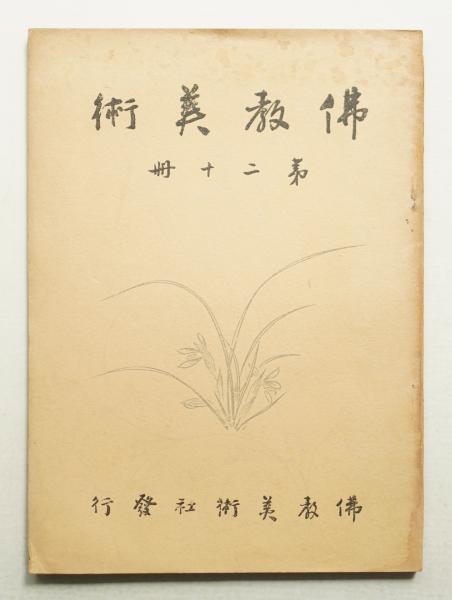 佛教美術
第二十冊
佛教美術社發行